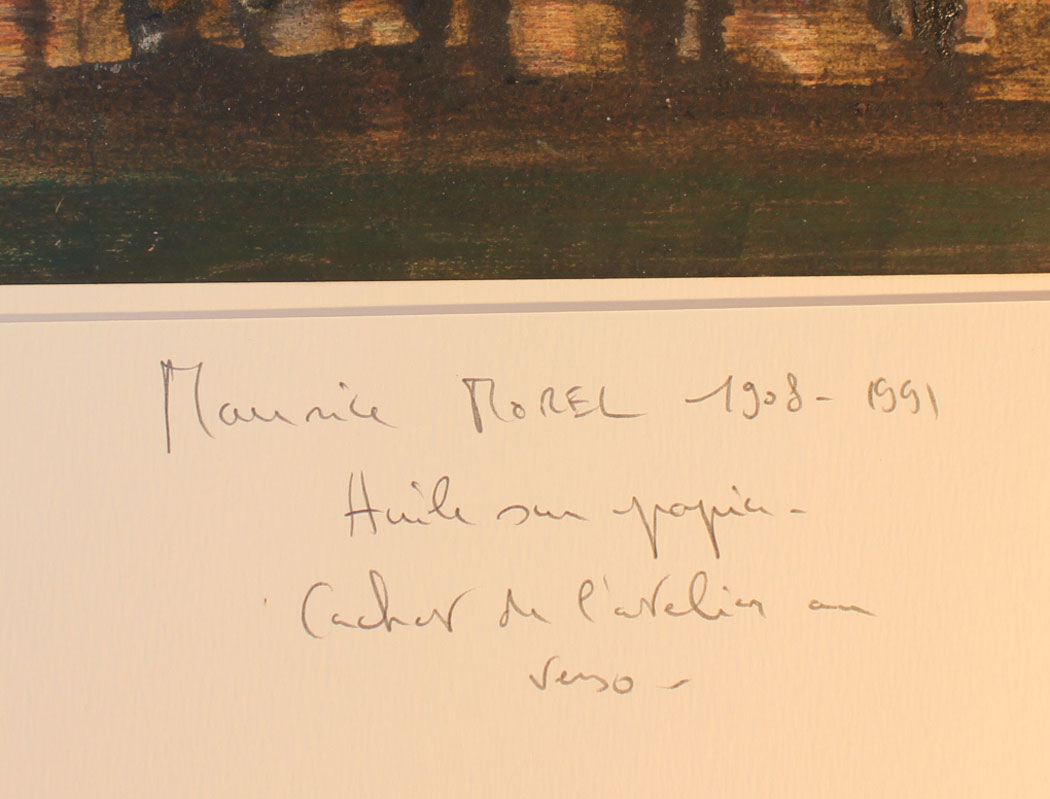 Maurice MOREL - 1908 - 1991
Huile sur papier -
Cachet de l'atelier au
verso -